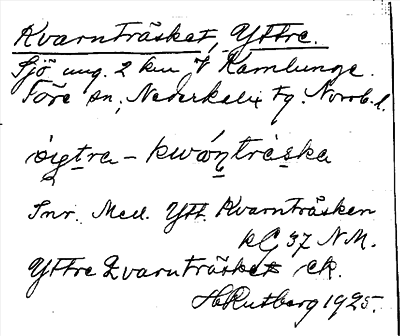 Kvarnträsket, Yttre.
Sjö ung. 2 km V Kamlunge.
Töre sn, Nederkalix tg. Norrb. l.
Inr. Med. Ytt. Kvarnträsken
37 N.M.
Yttre Qvarnträsket ek.
H Rutberg 1925.